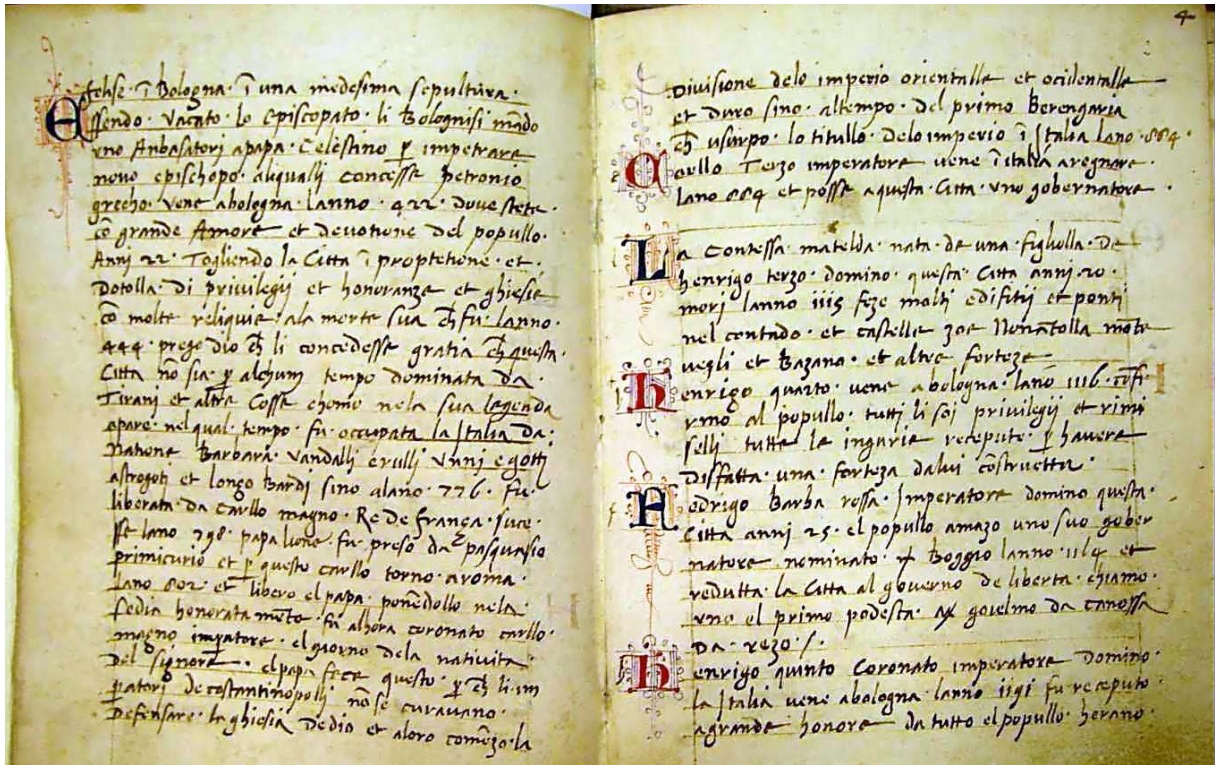 felise · ī Bologna · ī una medesima sepultura ·
Essendo · vacato · lo episcopato · li Bolognisi mādo
rno Anbasatori apapa · Celestino ꝑ impetrare
novo epischopo · aliqualli concesse petronio
grecho · vene abologna · lanno · 422 · dove stete ·
cō grande Amore et devotione del populło ·
Anni 22 · Togliendo la Citta ī proptetione · et ·
Dotolla · di privilegii et honoranze et ghiesie
cō molte reliquie · ala morte sua cħ fu · lanno ·
444 · prego dio cħ li concedesse gratia cħ questa ·
Citta nō sia · ꝑ alchum tempo dominata da ·
Tirani et altra Cossa chomo nela sua legenda
apare · nel qual · tempo · fu · occupata la Italia da ;
Natione Barbara · Vandalli erulli Vnni e gotti
astrogoti et longo Bardi sino alano · 776 · fu ·
liberata · da carllo magno · Re de frança · suce ·
sse lano 798 · papa lione · fu preso da pasquasio
primicurio et ꝑ questo carllo torno · aroma ·
lano 802 · et libero el papa · ponēdollo nela ·
sedia honorata mēte · fu alhora coronato carllo ·
magno imꝑatore · el giorno dela nativita ·
Del signore · el papa fece questo · ꝑ cħ li im
ꝑatori de costantinopolli nō se curavano ·
Defensare · la ghiesia de dio et aloro comēzo · la
4
Divisione delo imperio orientalle et ocidentalle
et duro sino · altempo · del primo Berengaria
cħ usurpo · lo titullo · delo imperio ī Italia lano · 884 ·
Carllo Terzo imperatore vene ī italia aregnare ·
lano 884 et posse aquesta · Citta · uno gobernatore ·
La Contessa · matelda · nata · da una · figliolla · De
henrigo terzo · domino · questa · Citta anni · 20 ·
mori lanno iiis feze molti edifitii et ponti
nel contado · et castelle zoe Nonātolla mōte
vegli et Bazana · et altre forteze
henrigo quarto · vene abologna · lano 1116 · cōfi
rmo al popullo · tutti li soi privilegii et rimi
selli tutte le ingurie recepute · ꝑ havere
Disfatta · una · forteza dalui cōstruetta ·
Fedrigo Barba rossa · Imperatore domino questa ·
Citta anni 25 · el popullo amazo uno suo gober
natore nominato · Boggio lanno · 1164 et
redutta · la Citta al governo de liberta · chiamo ·
rno el primo podesta · govelmo da canossa
Da · rezo /.
henrigo quinto Coronato imperatore domino ·
la Italia vene abologna · lanno 1191 fu receputo ·
agrande honore da tutto el popullo · herano ·